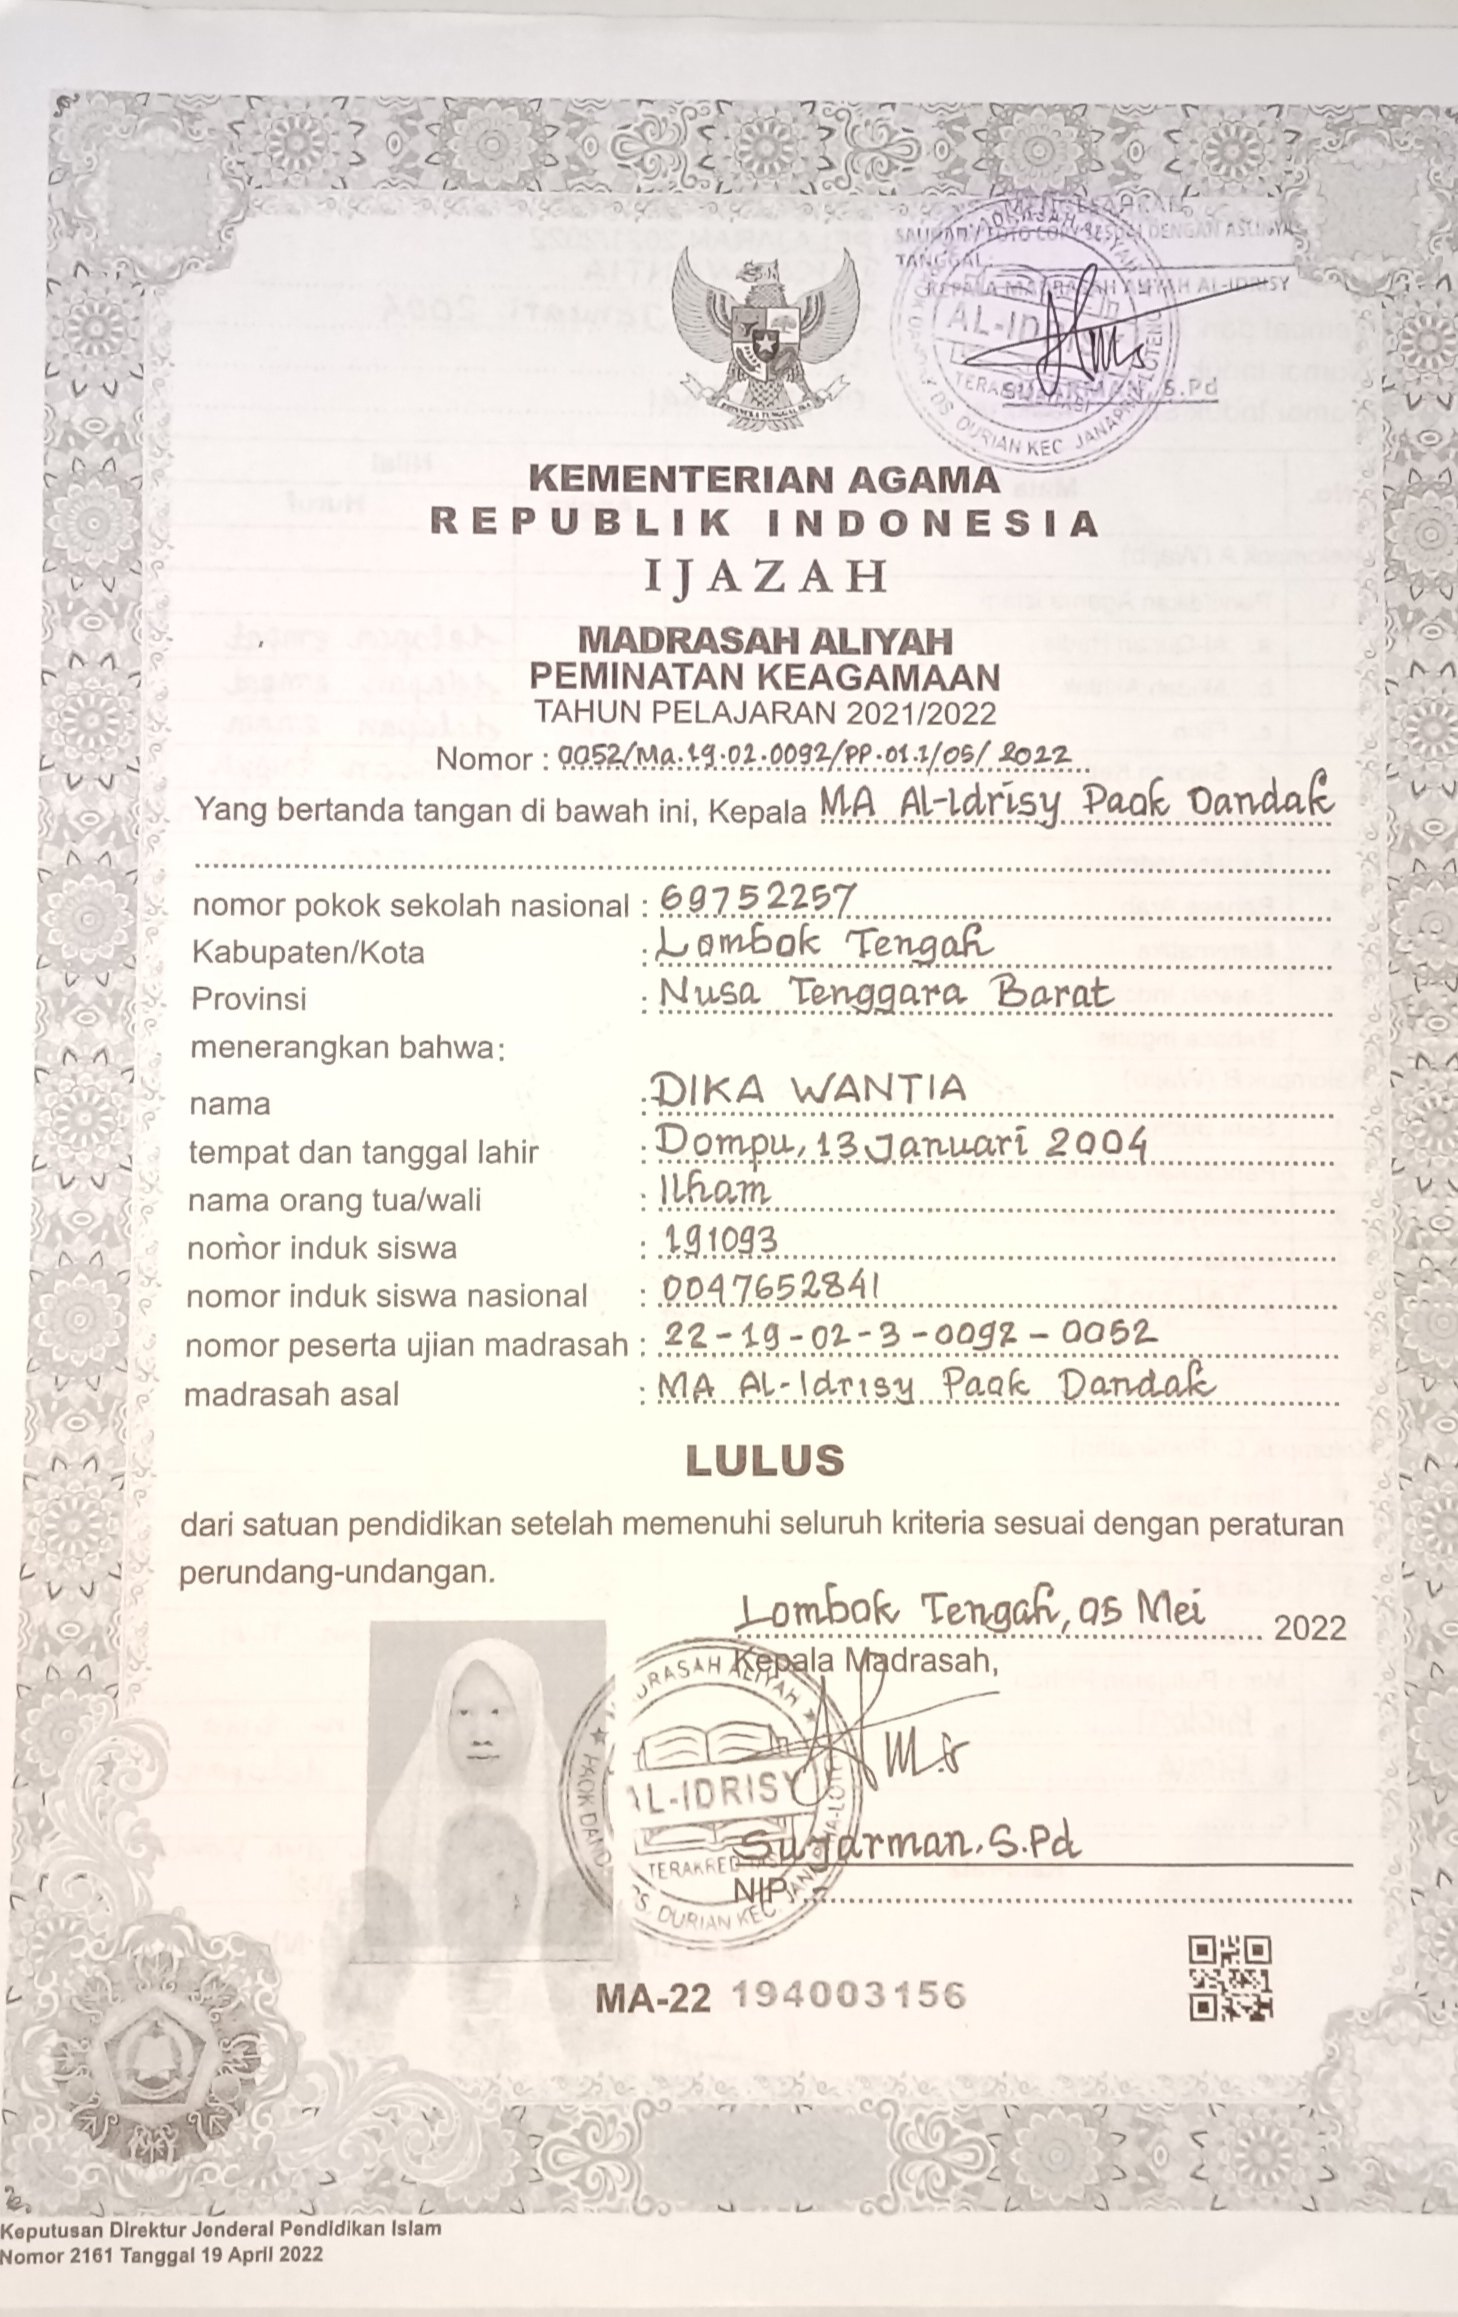 MENGESAHKAN
SALINAN / FOTO COPY SESUAI DENGAN ASLINYA
TANGGAL:
KEPALA MADRASAH ALIYAH AL-IDRISY
AL-IDRISY
SUJARMAN, S.Pd
DS. DURIAN KEC. JANAPRIA-LOTENG
KEMENTERIAN AGAMA
REPUBLIK INDONESIA
IJAZAH
MADRASAH ALIYAH
PEMINATAN KEAGAMAAN
TAHUN PELAJARAN 2021/2022
Nomor : 0052/Ma.19.02.0092/PP.01.1/05/2022
Yang bertanda tangan di bawah ini, Kepala MA Al-Idrisy Paok Dandak
nomor pokok sekolah nasional : 69752257
Kabupaten/Kota : Lombok Tengah
Provinsi : Nusa Tenggara Barat
menerangkan bahwa:
nama : DIKA WANTIA
tempat dan tanggal lahir : Dompu, 13 Januari 2004
nama orang tua/wali : Ilham
nomor induk siswa : 191093
nomor induk siswa nasional : 0047652841
nomor peserta ujian madrasah : 22-19-02-3-0092-0052
madrasah asal : MA Al-Idrisy Paok Dandak
LULUS
dari satuan pendidikan setelah memenuhi seluruh kriteria sesuai dengan peraturan
perundang-undangan.
Lombok Tengah, 05 Mei 2022
Kepala Madrasah,
MADRASAH ALIYAH
AL-IDRISY
Sujarman, S.Pd
NIP. -
DS. DURIAN KEC.
MA-22 194003156
Keputusan Direktur Jenderal Pendidikan Islam
Nomor 2161 Tanggal 19 April 2022